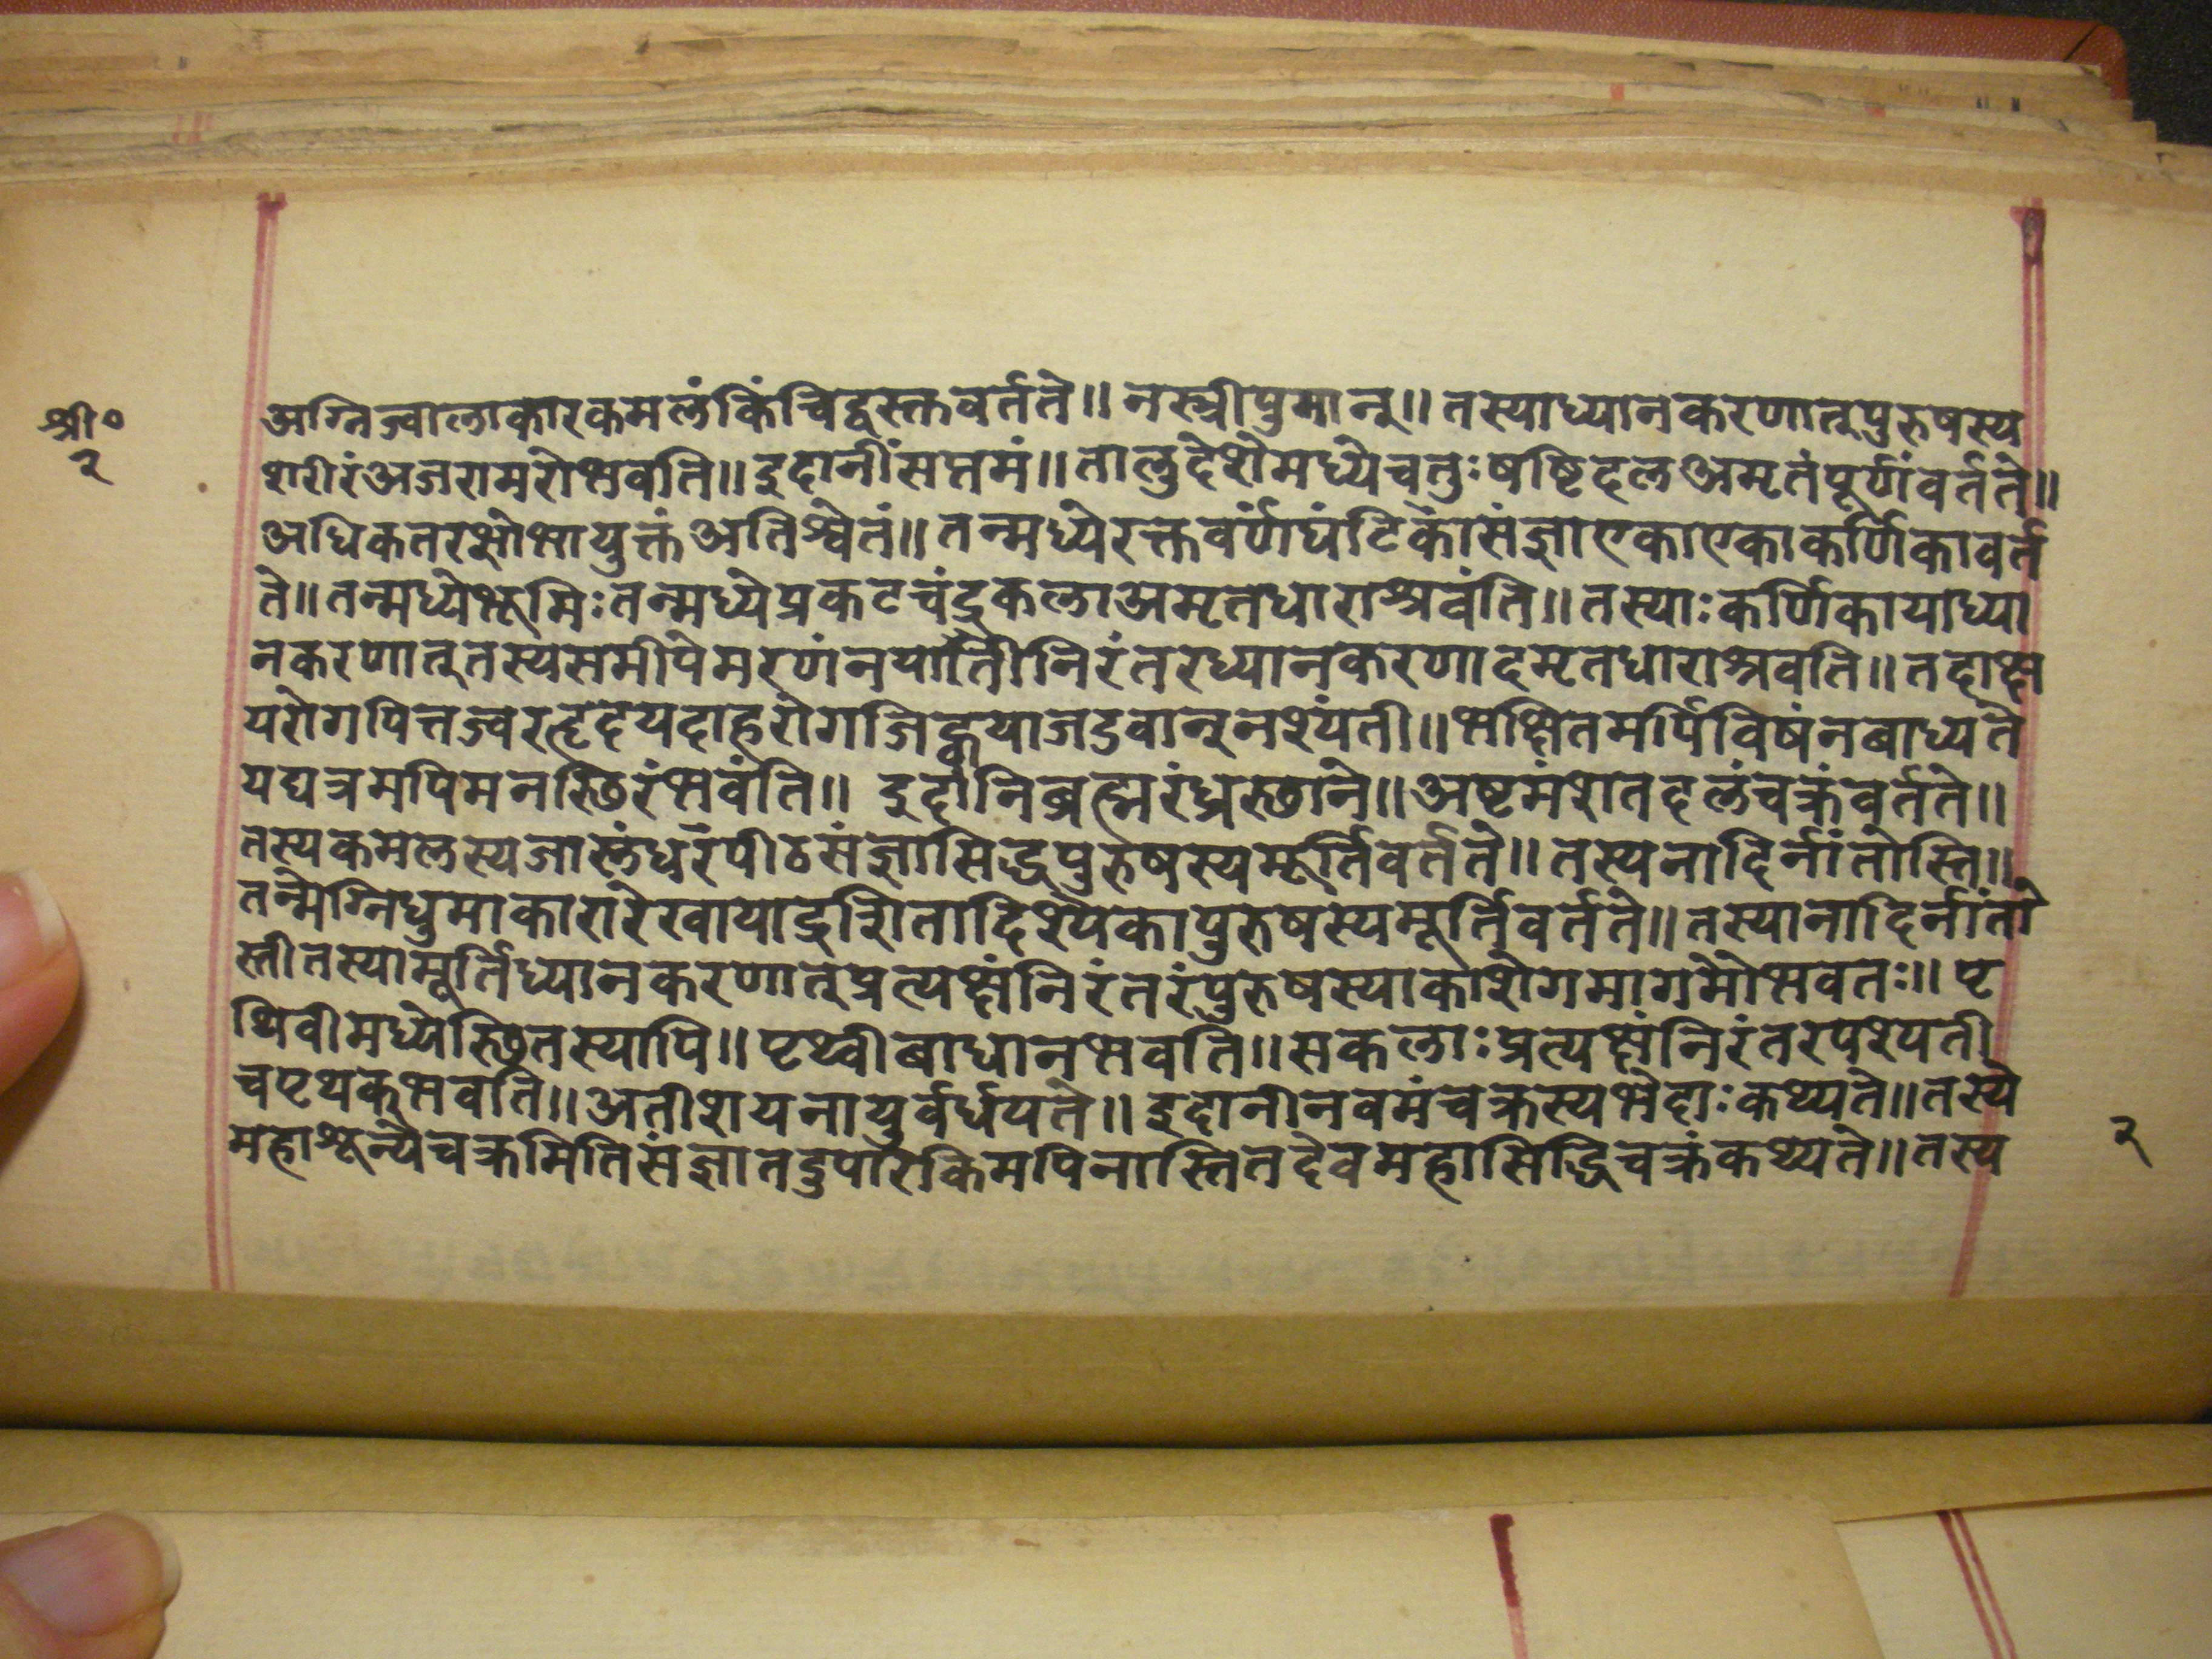 श्री०
२
अग्निज्वालाकारकमलंकिंचिद्वस्तवर्तते॥ नस्त्रीपुमान्॥ तस्याध्यानकरणात्पुरुषस्य
शरीरंअजरामरोभवति॥ इदानींसप्तमं॥ तालुदेशेमध्येचतुःषष्टिदलअमृतंपूर्णंवर्तते॥
अधिकतरशोभायुक्तंअतिश्वेतं॥ तन्मध्येरक्तवर्णघंटिकांसंज्ञाएकाएकाकर्णिकावर्त
ते॥ तन्मध्येभूमिःतन्मध्येप्रकटचंद्रकलाअमृतधाराश्रवंति॥ तस्याःकर्णिकायाध्या
नकरणात्तस्यसमीपेमरणंनयाति॥निरंतरध्यानकरणादमृतधाराश्रवति॥ तदाक्ष
यरोगपित्तज्वरहृदयदाहरोगजिह्वयाजडवान्नश्यंती॥ भक्षितमर्पिविषंनबाध्यते
यद्यत्रमपिमनस्थिरंभवंति॥ इदानिब्रह्मरंध्रस्थाने॥ अष्टमंशतदलंचक्रंवर्तते॥
तस्यकमलस्यजालंधरंपीठसंज्ञासिद्धपुरुषस्यमूर्तिवर्तते॥ तस्यनादिर्नांतोस्ति॥
तन्मेग्निधुमाकारारेखाया
दिश्येकापुरुषस्यमूर्तिवर्तते॥ तस्यानादिर्नांतो
स्तीतस्यामूर्तिध्यानकरणात्प्रत्यक्षंनिरंतरंपुरुषस्याकाशेगमागमोभवतः॥ पृ
थिवीमध्येस्थितस्यापि॥ पृथ्वीबाधानभवति॥ सकलाःप्रत्यक्षंनिरंतरपश्यती
चपृथक्भवति॥ अतीशयनायुर्वर्धयते॥ इदानीनवमंचक्रस्यभेदाःकथ्यते॥ तस्य
महाशून्येचक्रमितिसंज्ञातदुपरिकिमपिनास्तितदेवमहासिद्धिचक्रंकथ्यते॥ तस्य
२